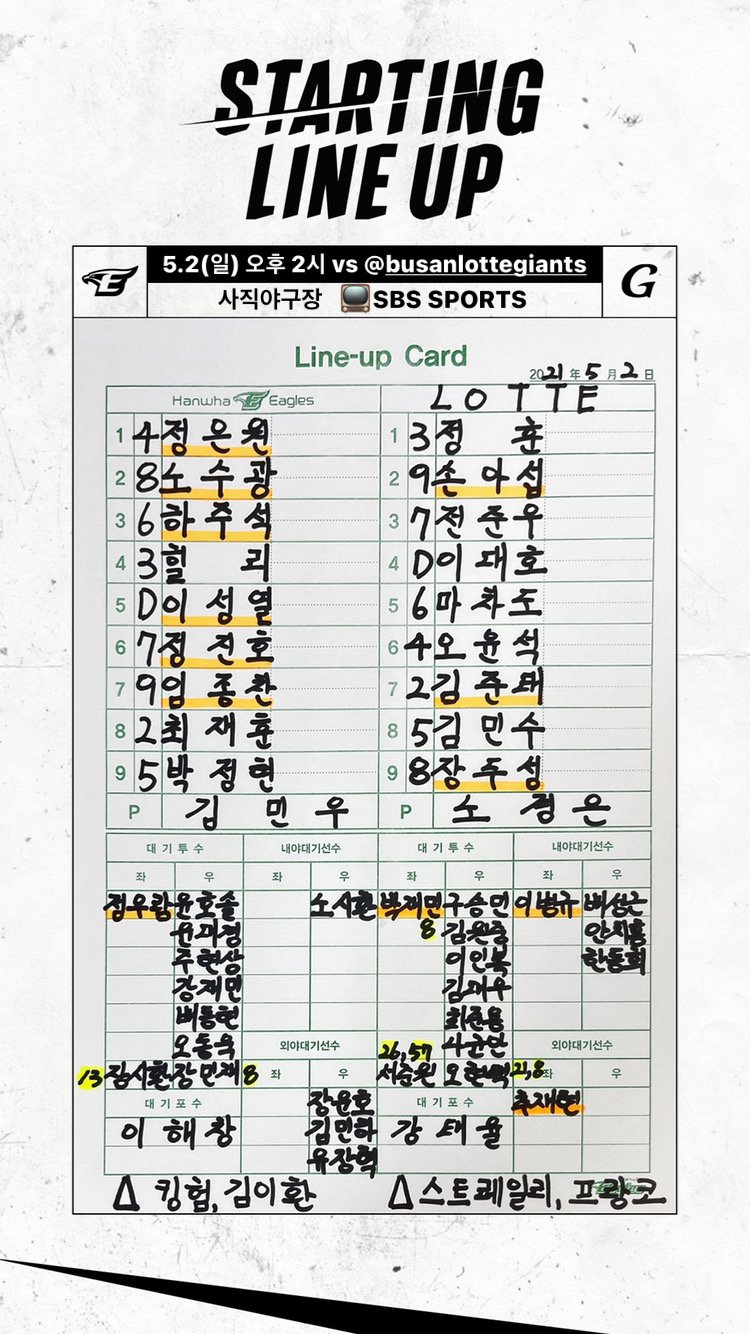 STARTING
LINE UP
5.2(일) 오후 2시 vs @busanlottegiants
사직야구장 SBS SPORTS
Line-up Card
2021 年 5 月 2 日
Hanwha Eagles LOTTE
1 4 정은원 1 3 정훈
2 8 노수광 2 9 손아섭
3 6 하주석 3 7 전준우
4 3 힐리 4 D 이대호
5 D 이성열 5 6 마차도
6 7 정진호 6 4 오윤석
7 9 임종찬 7 2 김준태
8 2 최재훈 8 5 김민수
9 5 박정현 9 8 장두성
P 김민우 P 노경은
대기투수 내야대기선수 대기투수 내야대기선수
좌 우 좌 우 좌 우 좌 우
정우람 윤호솔 노시환 박재민 구승민 이병규 배성근
윤대경 8 김원중 안치홍
주현상 이인복 한동희
강재민 김대우
배동현 최준용
오동욱 외야대기선수 26,57 외야대기선수
13 장시환 장민재 8 좌 우 서준원 오현택 21,8 좌 우
대기포수 장운호 대기포수 추재현
이해창 김민하 강태율
유장혁
△ 킹험, 김이환 △ 스트레일리, 프랑코